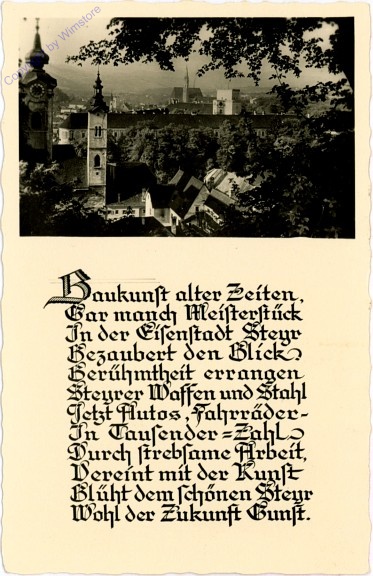 Copyright by Wimstore
Baukunst alter Zeiten,
Gar manch Meisterstück
In der Eisenstadt Steyr
Bezaubert den Blick
Berühmtheit errangen
Steyrer Waffen und Stahl
Jetzt Autos, Fahrräder-
In Tausender=Zahl
Durch strebsame Arbeit,
Vereint mit der Kunst
Blüht dem schönen Steyr
Wohl der Zukunft Gunst.